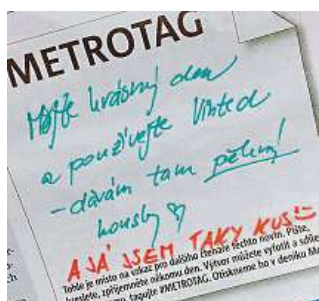 METROTAG
Mějte krásný den
a používejte Vinted
- dávám tam pěkný
kousky
A JÁ JSEM TAKY KUS!
Tohle je místo na vzkaz pro dalšího čtenáře těchto novin. Pište,
kreslete, zpříjemněte někomu den. Výtvor můžete vyfotit a sdíle
tagujte #METROTAG. Otiskneme ho v deníku Me